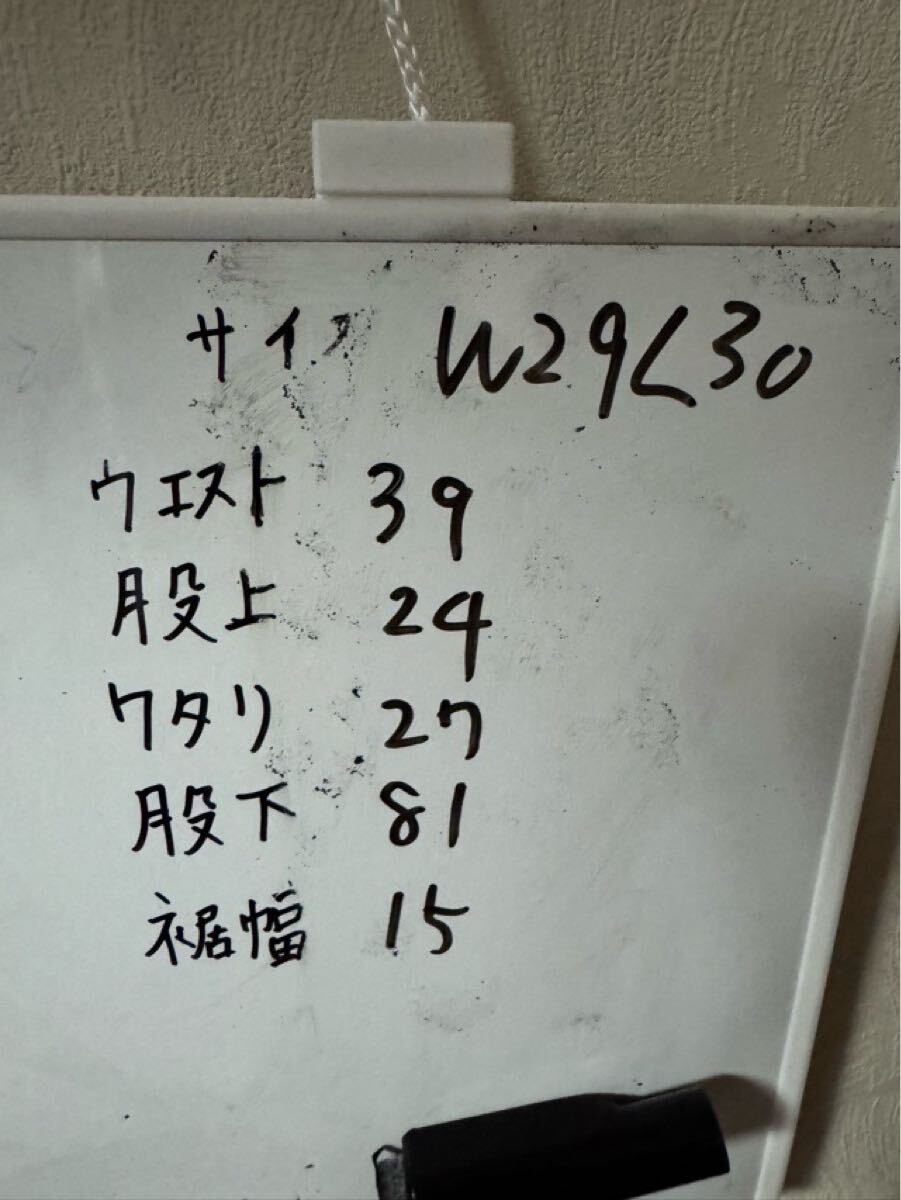 サイズ W29L30
ウエスト 39
股上 24
ワタリ 27
股下 81
裾幅 15